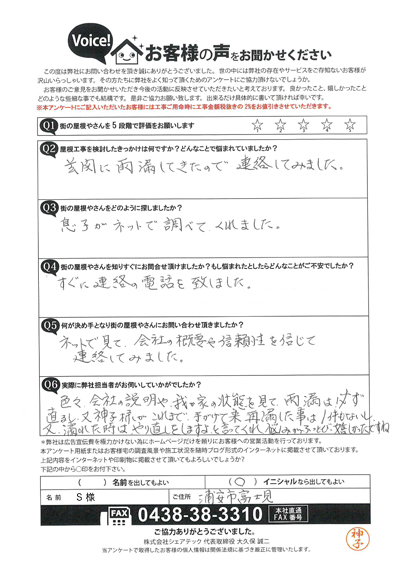 Voice!
お客様の声をお聞かせください
この度は弊社にお問い合わせを頂き誠にありがとうございました。世の中には弊社の存在やサービスをご存知ないお客様が
沢山いらっしゃいます。その方たちに弊社をよく知って頂くためのアンケートにご協力頂けないでしょうか。
お客様のご意見をお聞かせいただき今後の活動に反映させていただきたいと考えております。良かったこと、嬉しかったこと
どのような些細な事でも結構です。是非ご協力お願い致します。出来るだけ具体的に書いて頂ければ幸いです。
※本アンケートにご記入いただいたお客様には工事ご用命時に工事金額税抜きの2%をお値引きさせていただきます。
Q1 街の屋根やさんを5段階で評価をお願いします ☆ ☆ ☆ ☆ ☆
Q2 屋根工事を検討したきっかけは何ですか？どんなことで悩まれていましたか？
玄関に雨漏してきたので連絡してみました。
Q3 街の屋根やさんをどのように探しましたか？
息子がネットで調べてくれました。
Q4 街の屋根やさんを知りすぐにお問合せ頂けましたか？もし悩まれたとしたらどんなことがご不安でしたか？
すぐに連絡の電話を致しました。
Q5 何が決め手となり街の屋根やさんにお問い合わせ頂きましたか？
ネットで見て、会社の概要や信頼性を信じて
連絡してみました。
Q6 実際に弊社担当者がお伺いしていかがでしたか？
色々会社の説明や、我が家の状態を見て、雨漏は必ず
直るし、又神子様がこれまで手がけて来、再漏した事は1件もないし
又、漏れた時はやり直しをしますよと言ってくれ
嬉しかったですね
※弊社は広告宣伝費を極力かけない為にホームページだけを頼りにお客様への営業活動を行っております。
本アンケート用紙またはお客様宅の調査風景や施工状況を随時ブログ形式のインターネットに掲載させて頂いております。
上記内容をインターネットや印刷物に掲載させて頂いてもよろしいでしょうか？
下記の中から〇印をお付け下さい。
( ) 名前を出してもよい (〇) イニシャルなら出してもよい
名前 S 様 ご住所 浦安市富士見
FAX 0438-38-3310 本社直通 FAX番号
ご協力ありがとうございました。
株式会社シェアテック 代表取締役 大久保 誠二
当アンケートで取得したお客様の個人情報は関係法規に基づき厳正に管理いたします。
神子